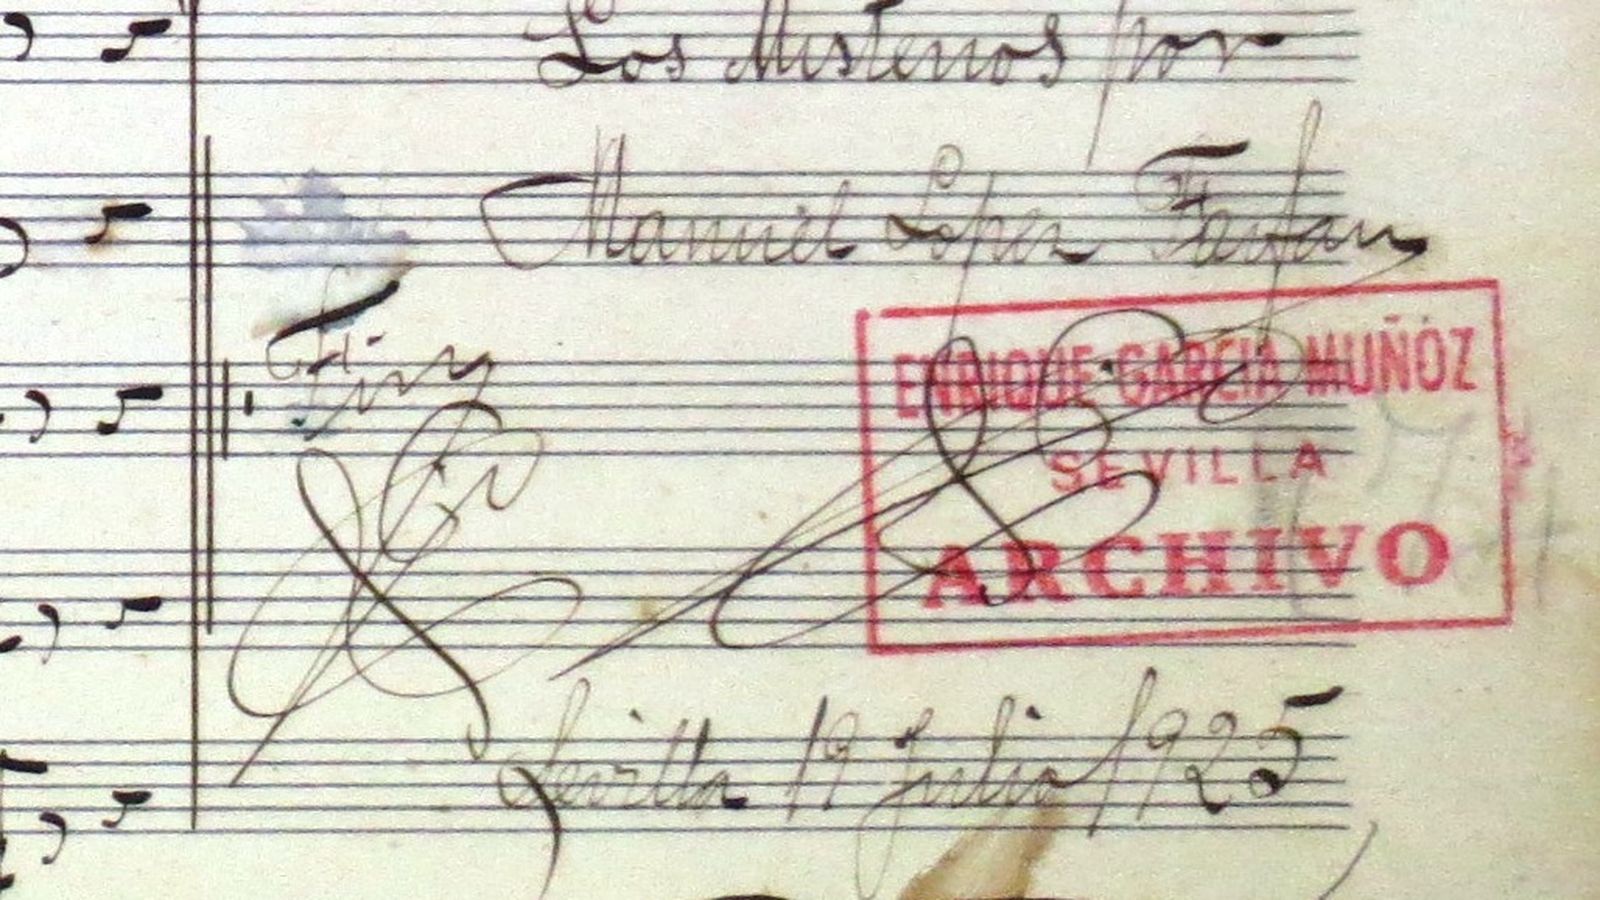 Los Misterios por
Manuel López Farfan
Fin
ENRIQUE GARCIA MUÑOZ
SEVILLA
ARCHIVO
Sevilla 19 Julio 1925